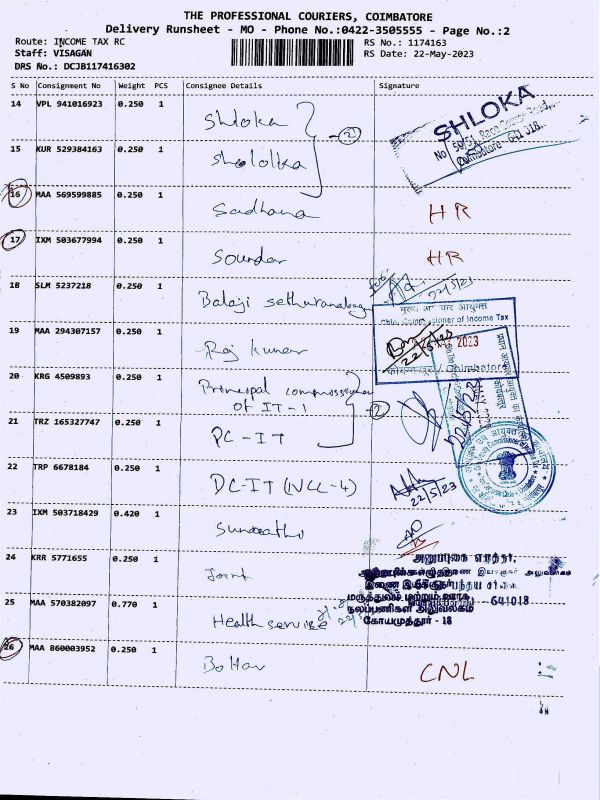 THE PROFESSIONAL COURIERS, COIMBATORE
Delivery Runsheet - MO - Phone No.:0422-3505555 - Page No.:2
Route: INCOME TAX RC
Staff: VISAGAN
DRS No.: DCJB117416302
RS No.: 1174163
RS Date: 22-May-2023
S No Consignment No Weight PCS Consignee Details Signature
14 VPL 941016923 0.250 1 Shloka
SHLOKA
Coimbatore - 641 018.
15 KUR 529384163 0.250 1
2
16 MAA 569599885 0.250 1 Sadhana HR
17 IXM 503677994 0.250 1 Soundar HR
18 SLM 5237218 0.250 1 Balaji
22/5/23
मुख्य आयकर आयुक्त
Chief Commissioner of Income Tax
19 MAA 294307157 0.250 1 Raj kumar
2023
22/5/23
Coimbatore
20 KRG 4509893 0.250 1 Principal commissioner
of IT-1
21 TRZ 165327747 0.250 1 PC-IT
2
22/5/23
22 TRP 6678184 0.250 1 DC-IT (NCC-4)
22/5/23
23 IXM 503718429 0.420 1
24 KRR 5771655 0.250 1 Joint
25 MAA 570382097 0.770 1 Health service
மருத்துவம் மற்றும் ஊரக
நலப்பணிகள் அலுவலகம்
கோயமுத்தூர் - 18
641018
26 MAA 860003952 0.250 1 CNL